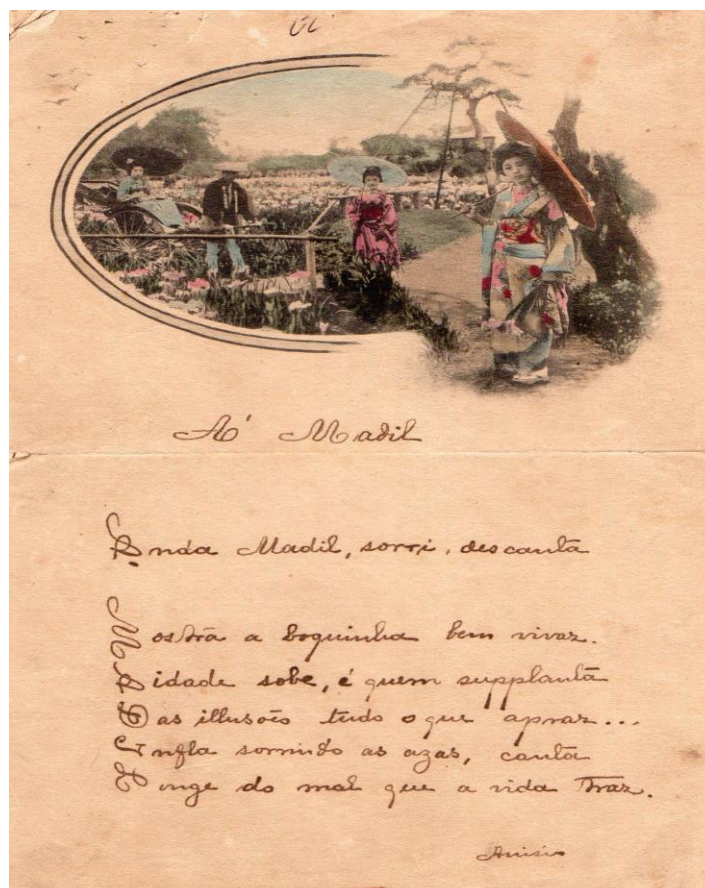 A' Madil
Anda Madil, sorri, descanta
Mostra a boquinha bem vivaz.
A idade sobe, é quem supplanta
Das illusões tudo o que apraz...
Infla sorrindo as azas, canta
Longe do mal que a vida traz.